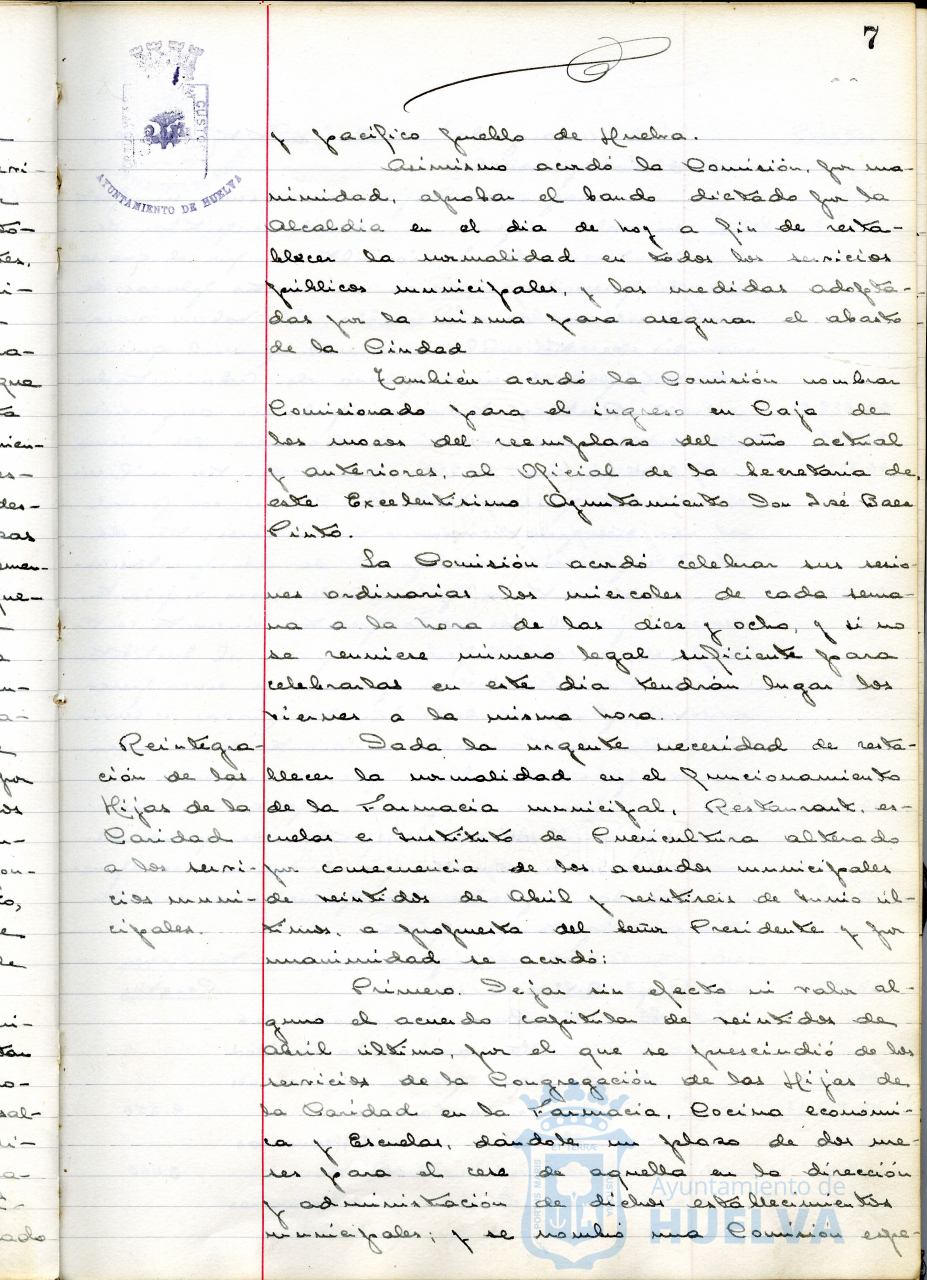 7
CUSTO
AYUNTAMIENTO DE HUELVA
y pacífico pueblo de Huelva.
Asimismo acordó la Comisión, por una-
nimidad, aprobar el bando dictado por la
Alcaldía en el día de hoy a fin de resta-
blecer la normalidad en todos los servicios
públicos municipales, y las medidas adopta-
das por la misma para asegurar el abasto
de la Ciudad
También acordó la Comisión nombrar
Comisionado para el ingreso en Caja de
los mozos del reemplazo del año actual
y anteriores, al Oficial de la Secretaría de
este Excelentísimo Ayuntamiento Don José Baez
Pinto.
La Comisión acordó celebrar sus sesio-
nes ordinarias los miercoles de cada sema-
na a la hora de las diez y ocho, y si no
se reuniese número legal suficiente para
celebrarlas en este día tendrán lugar los
viernes a la misma hora.
Reintegra-
ción de las
Hijas de la
Caridad
a los servi-
cios muni-
cipales.
Dada la urgente necesidad de resta-
blecer la normalidad en el funcionamiento
de la Farmacia municipal, Restaurant, es-
cuelas e Instituto de Puericultura alterado
por consecuencia de los acuerdos municipales
de veintidos de Abril y veintiseis de Junio úl-
timos, a propuesta del Señor Presidente y por
unanimidad se acordó:
Primero. Dejar sin efecto ni valor al-
guno el acuerdo capitular de veintidos de
abril último, por el que se prescindió de los
servicios de la Congregación de las Hijas de
la Caridad en la Farmacia, Cocina económi-
ca y Escuelas, dándole un plazo de dos me-
ses para el cese de aquella en la dirección
y administración de dichos establecimientos
municipales; y se nombró una Comisión espe-
Ayuntamiento de
HUELVA